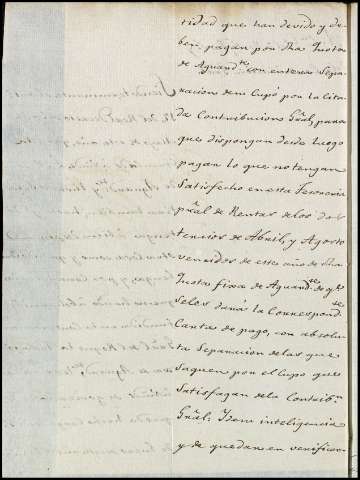 tidad que han devido y de-
ben pagar por dha Quota
de Aguardte con entera Sepa-
racion de su Cupo por la cita-
da Contribucion Gral, para
que dispongan desde luego
pagar lo que no tengan
Satisfecho en esta Tesoreria
pral de Rentas de los dos
tercios de Abril, y Agosto
vencidos de este año de dha
Quota fixa de Aguardte de qe
se les dará la Correspondte
Carta de pago, con absolu-
ta Separacion de las que
Saquen por el Cupo que
Satisfagan de la Contribn
Gral. Y de su inteligencia
y de quedar en verificar-